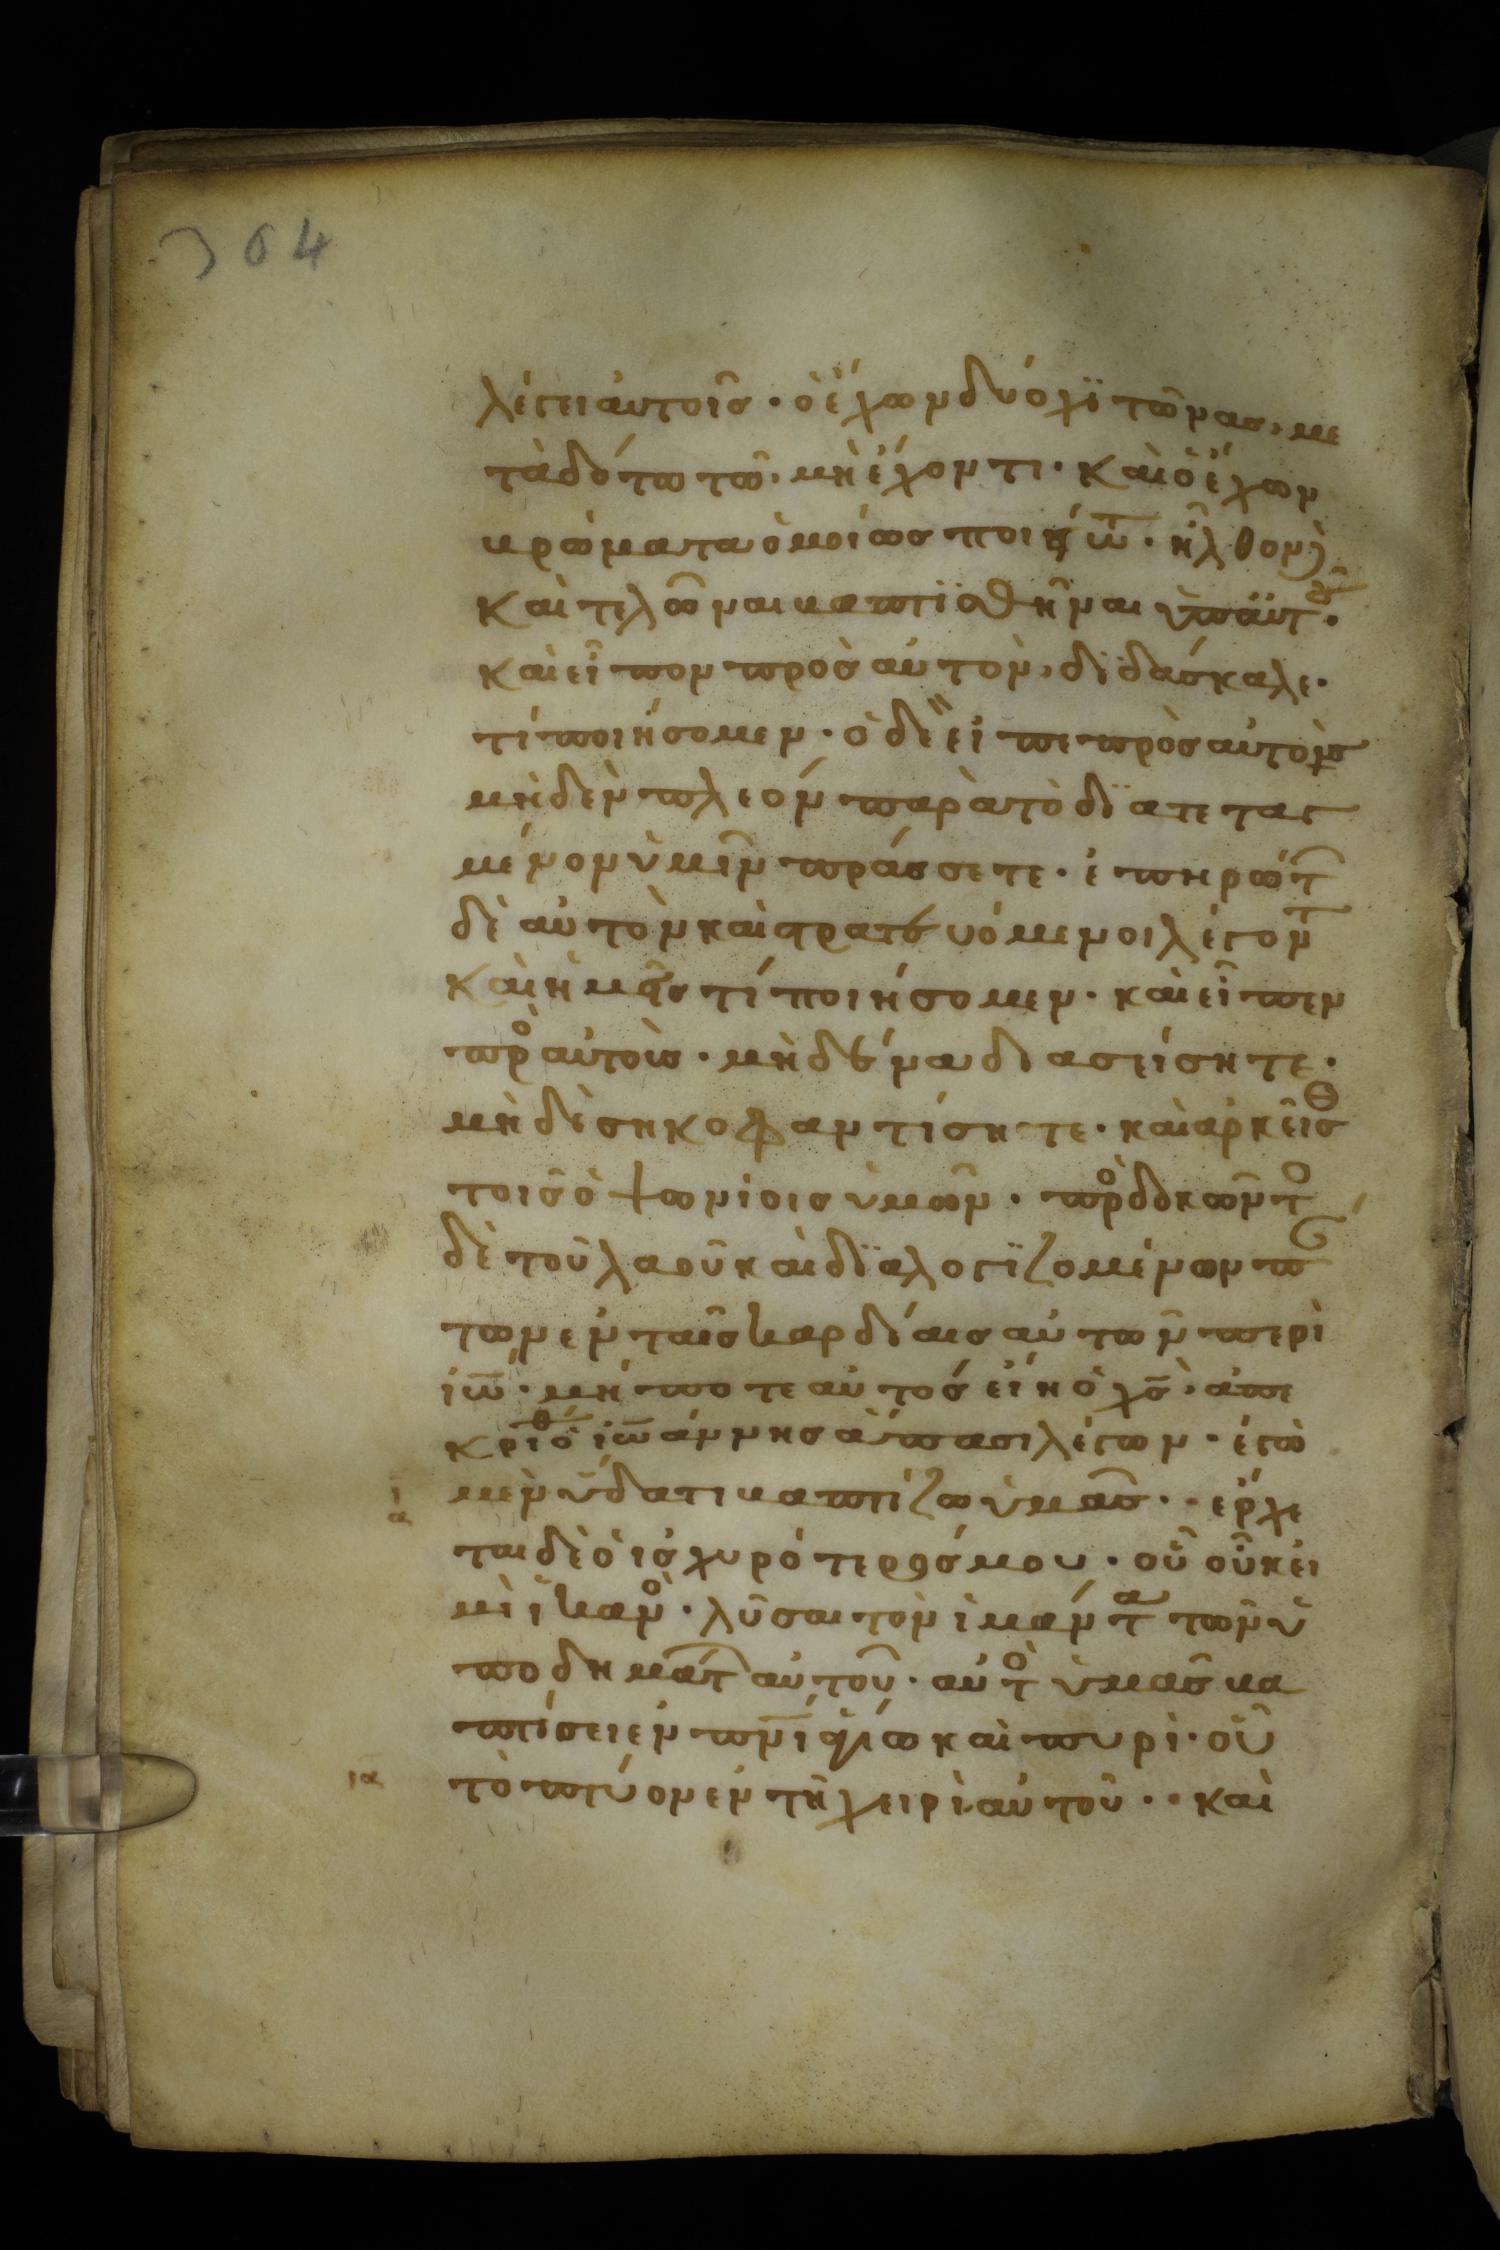 304
λέγει αυτοῖς · ὁ ἔχων δύο χϊτῶνας, με
τὰδότω τῶ · μὴ ἔχοντι · καὶ ὁ ἔχων
βρώματα ὁμοίως ποιήτω · ἦλθον δὲ
καὶ τελῶναι βαπτϊσθῆναι ὑπ αὐτοῦ ·
καὶ εἶπον πρὸς αὐτὸν, διδάσκαλε ·
τί ποιήσομεν · ὁ δὲ εἶπε πρὸς αὐτοὺς
μηδὲν πλέον παρὰ τὸ διατεταγ
μένον ὑμῖν πράσσετε · ἐπηρώτ
δὲ αὐτὸν καὶ στρατευόμενοι λέγοντ
καὶ ἡμεῖς τί ποιήσομεν · καὶ εἶπεν
πρὸ αὐτοὺς · μὴδένα διασείσητε ·
μηδὲ σηκοφαντίσητε · καὶ ἀρκεῖσθ
τοῖς ὀψωνίοις ὑμῶν · προσδοκῶντο
δὲ τοῦ λαοῦ καὶ διαλογϊζομένων πάν
των ἐν ταῖς καρδίαις αὐτῶν περὶ
ἰω · μήποτε αὐτός εἴη ὁ χς, ἀπε
κρίθ ὁ ἰωάννης ἅπασι λέγων · ἐγὼ
ι
α
μὲν ὕδατι βαπτίζω ὑμᾶς · · ἔρχε
ται δὲ ὁ ἰσχυρότερός μου · οὗ οὐκ εἰ
μὶ ἱκανὸ · λῦσαι τὸν ἱμάντα τῶν ὑ
ποδημάτ αὐτοῦ · αὐτὸ ὑμᾶς βα
πτίσει ἐν πνι ἁγίω καὶ πυρὶ · οὗ
ια
τὸ πτύον ἐν τῆ χειρὶ αὐτοῦ · · καὶ